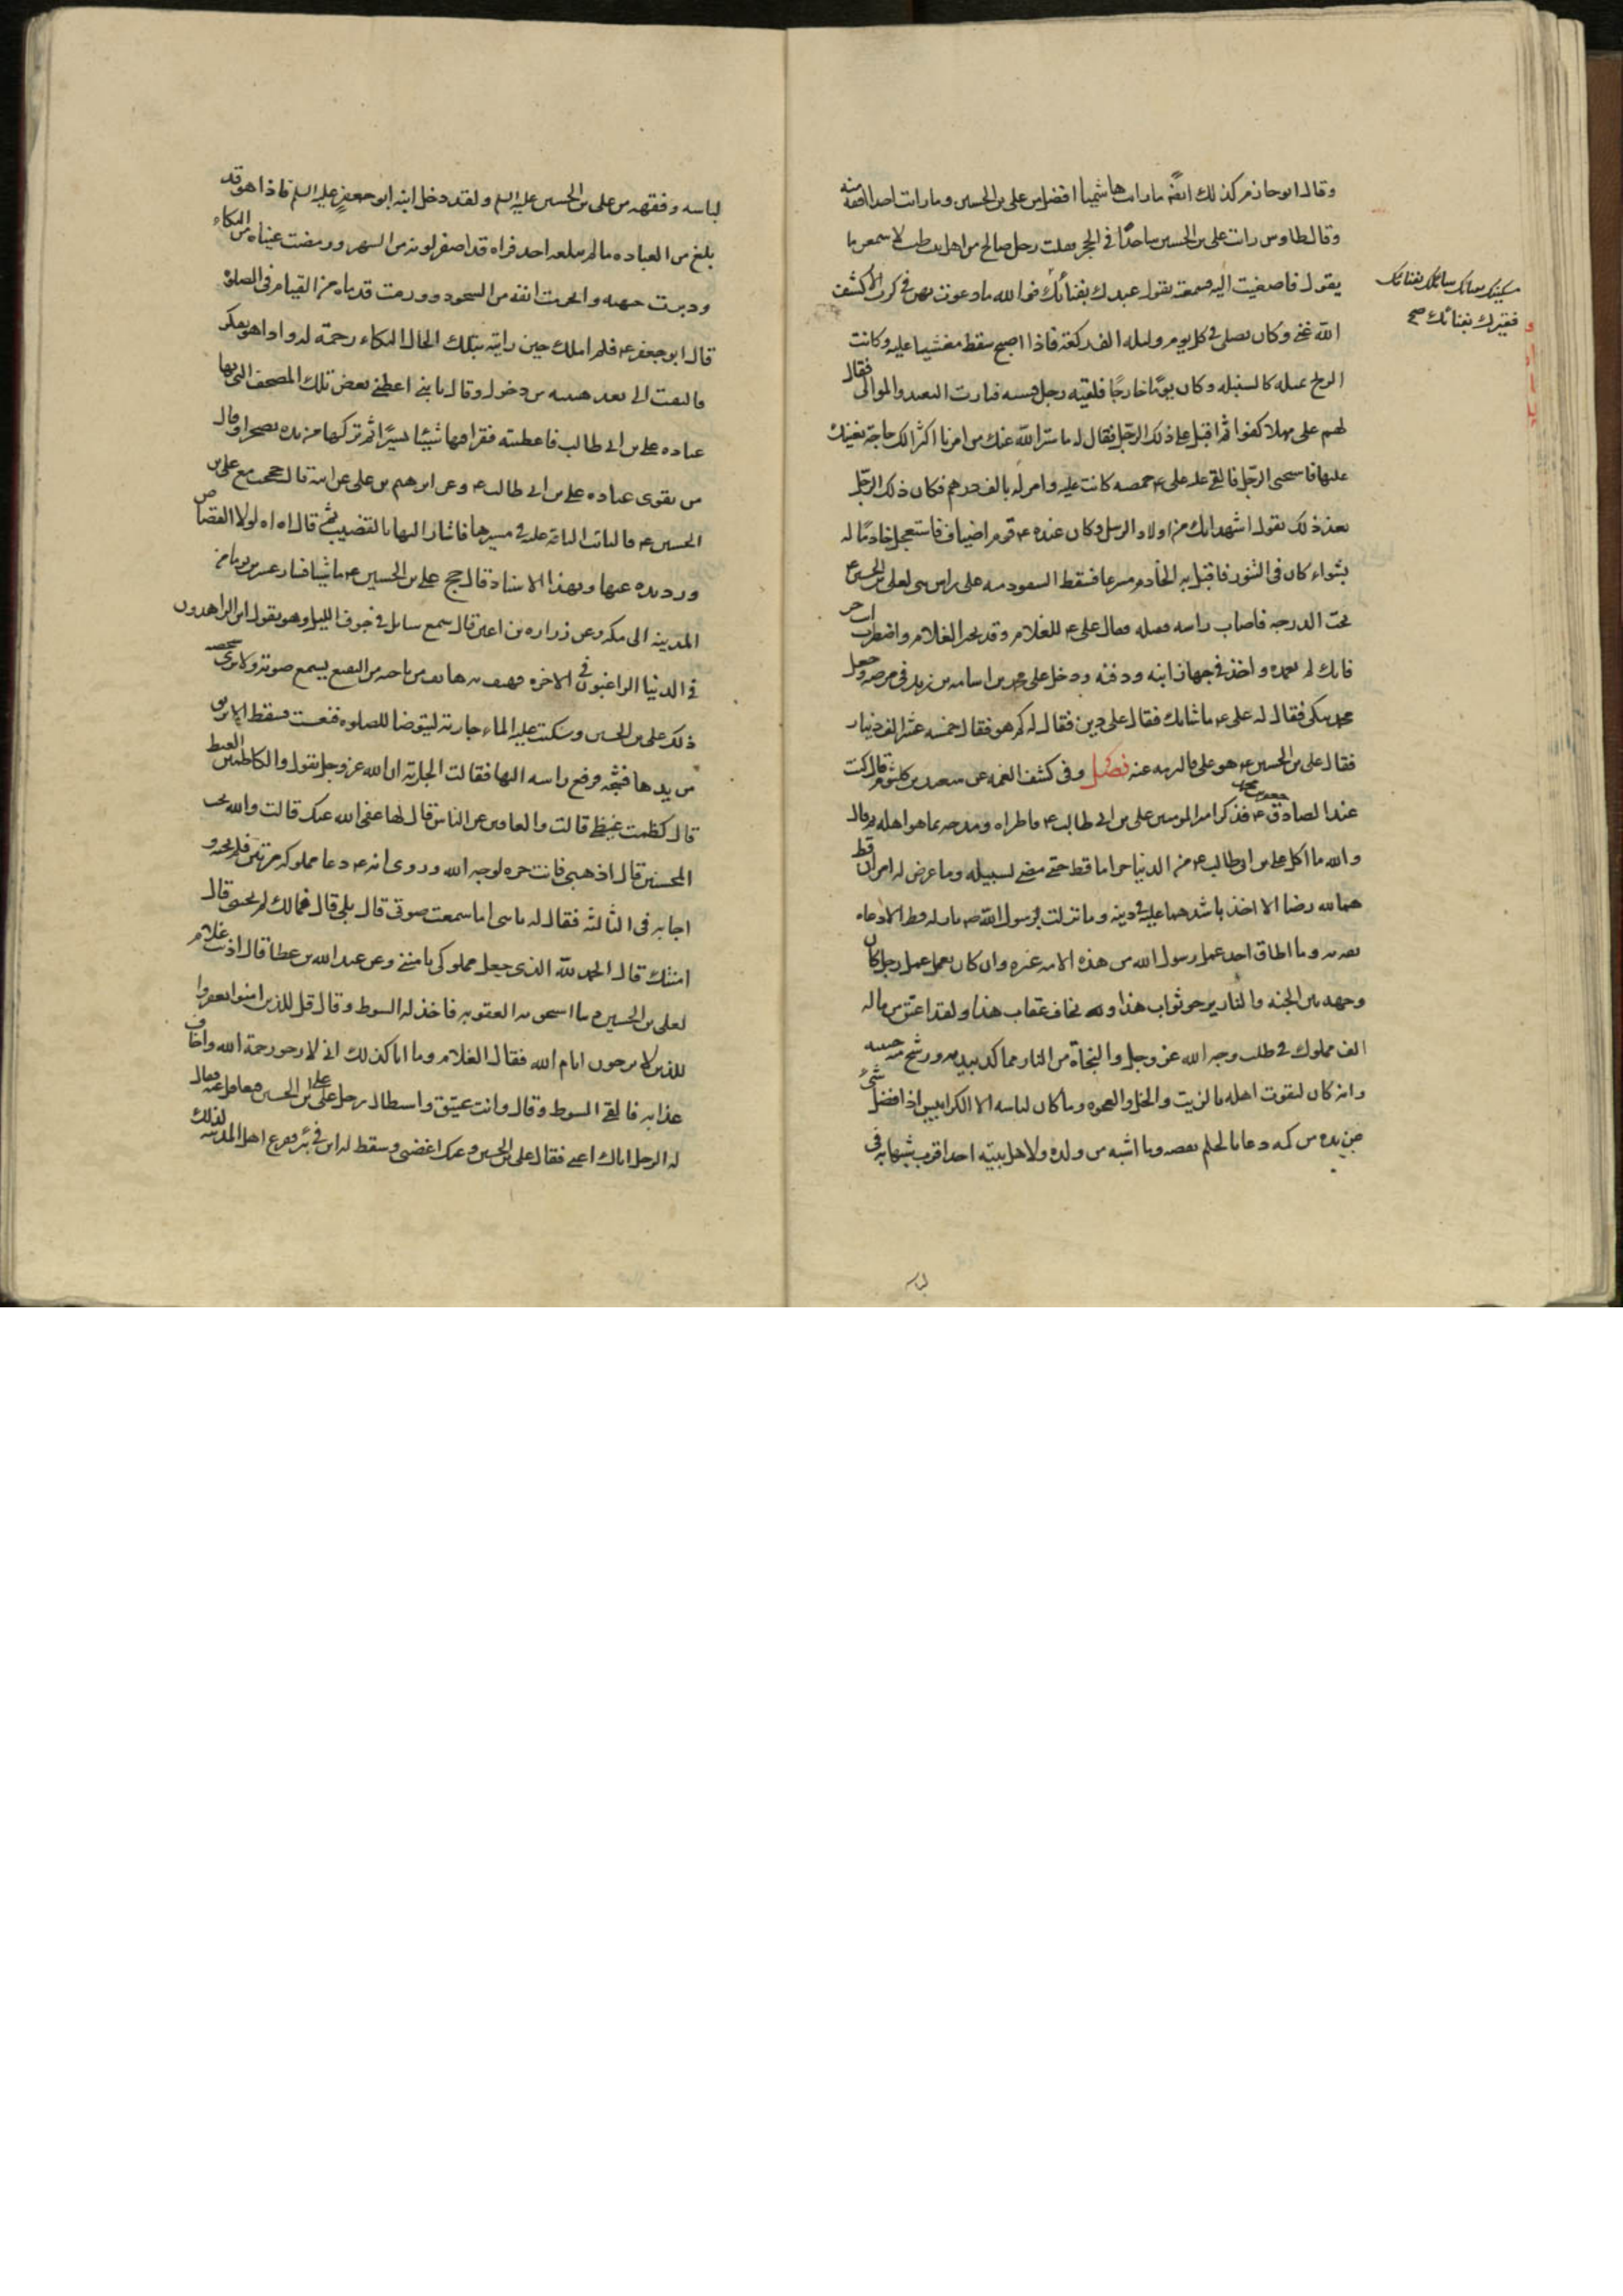 وقال ابو حازم كذلك ايضا ما رايت هاشميا افضل من على بن الحسين وما رايت احدا افقه منه
وقال طاوس رايت على بن الحسين ساجدا فى الحجر فقلت رجل صالح من اهل بيت طيب لاسمعن ما
يقول فاصغيت اليه فسمعته يقول عبدك بفنائك فوالله ما دعوت بهن فى كرب الا كشف
مسكينك بفنائك سائلك بفنائك
فقيرك بفنائك صح
الله عنى وكان يصلى فى كل يوم وليله الف ركعة فاذا اصبح سقط مغشيا عليه وكانت
الريح تميله كالسنبله وكان يوما خارجا فلقيه رجل فسبه فثارت اليه العبيد والموالى فقال
لهم على مهلا كفوا ثم اقبل على ذلك الرجل فقال له ما ستر الله عنك من امرنا اكثر الك حاجة نعينك
عليها فاستحيى الرجل فالقى عليه على ع خميصه كانت عليه وامر له بالف درهم فكان ذلك الرجل
بعد ذلك يقول اشهد انك من اولاد الرسل وكان عنده ع قوم اضياف فاستعجل خادما له
بشواء كان فى التنور فاقبل به الخادم مسرعا فسقط السفود منه على راس بنى لعلى بن الحسين ع
تحت الدرجه فاصاب راسه فقتله فقال على ع للغلام وقد تحير الغلام واضطرب انت حر
فانك لم تعمده واخذ فى جهاز ابنه ودفنه ودخل على محمد بن اسامه بن زيد فى مرضه فجعل
محمد يبكى فقال له على ع ما شانك فقال على دين فقال له كم هو فقال خمسه عشر الف دينار
فقال على بن الحسين ع هو على فالتزمه عنه فصل وفى كشف الغمه عن سعيد بن كلثوم قال كنت
عند الصادق جعفر بن محمد ع فذكر امير المومنين على بن ابى طالب ع فاطراه ومدحه بما هو اهله ثم قال
والله ما اكل على بن ابى طالب ع من الدنيا حراما قط حتى مضى لسبيله وما عرض له امران قط
هما لله رضا الا اخذ باشدهما عليه فى دينه وما نزلت برسول الله ص نازله قط الا دعاه
ثقه به وما اطاق احد عمل رسول الله من هذه الامه غيره وان كان ليعمل عمل رجل كان
وجهه بين الجنه والنار يرجو ثواب هذه ويخاف عقاب هذه ولقد اعتق من ماله
الف مملوك فى طلب وجه الله عز وجل والنجاة من النار مما كد بيديه ورشح منه جبينه
وانه كان ليقوت اهله بالزيت والخل والعجوه وما كان لباسه الا الكرابيس اذا فضل شئ
عن يده من كمه دعا بالجلم فقصه وما اشبه من ولده ولا اهل بيته احد اقرب شبها به فى
لباسه
لباسه وفقهه من على بن الحسين عليه السلم ولقد دخل ابنه ابو جعفر عليه السلم فاذا هو قد
بلغ من العباده ما لم يبلغه احد فراه قد اصفر لونه من السهر ورمضت عيناه من البكاء
ودبرت جبهته وانخرمت انفه من السجود وورمت قدماه من القيام فى الصلوة
قال ابو جعفر ع فلم املك حين رايته بتلك الحال البكاء رحمة له واذا هو يفكر
فالتفت الى بعد هنيئه من دخولى وقال يا بنى اعطنى بعض تلك الصحف التى فيها
عباده على بن ابى طالب فاعطيته فقرا فيها شيئا يسيرا ثم تركها من يده تضجرا وقال
من يقوى عباده على بن ابى طالب ع وعن ابرهيم بن على عن ابيه قال حججت مع على بن
الحسين ع فالتاثت الناقة عليه فى مسيرها فاشار اليها بالقضيب ثم قال اه اه لولا القصاص
ورد يده عنها وبهذا الاسناد قال حج على بن الحسين ع ماشيا فسار عشرين يوما من
المدينه الى مكه وعن زراره بن اعين قال سمع سايل فى جوف الليل وهو يقول اين الزاهدون
فى الدنيا الراغبون فى الاخره فهتف به هاتف من ناحيه البقيع يسمع صوته ولا يرى شخصه
ذلك على بن الحسين وسكبت عليه الماء جارية ليتوضا للصلوه فنعست فسقط الابريق
من يدها فشجه فرفع راسه اليها فقالت الجارية ان الله عز وجل يقول والكاظمين الغيظ
قال كظمت غيظى قالت والعافين عن الناس قال لها عفى الله عنك قالت والله يحب
المحسنين قال اذهبى فانت حره لوجه الله وروى انه ع دعا مملوكه مرتين فلم يجبه و
اجابه فى الثالثه فقال له يا بنى اما سمعت صوتى قال بلى قال فمالك لم تجبنى قال
امنتك قال الحمد لله الذى جعل مملوكى يامننى وعن عبد الله بن عطا قال اذنب غلام
لعلى بن الحسين ذنبا استحق به العقوبه فاخذ له السوط وقال قل للذين امنوا يغفروا
للذين لا يرجون ايام الله فقال الغلام وما انا كذلك انى لارجو رحمة الله واخاف
عذابه فالقى السوط وقال وانت عتيق واستطال رجل على على بن الحسين فتغافل عنه فقال
له الرجل اياك اعنى فقال على بن الحسين وعنك اغضى وسقط له ابن فى بئر ففزع اهل المدينه لذلك